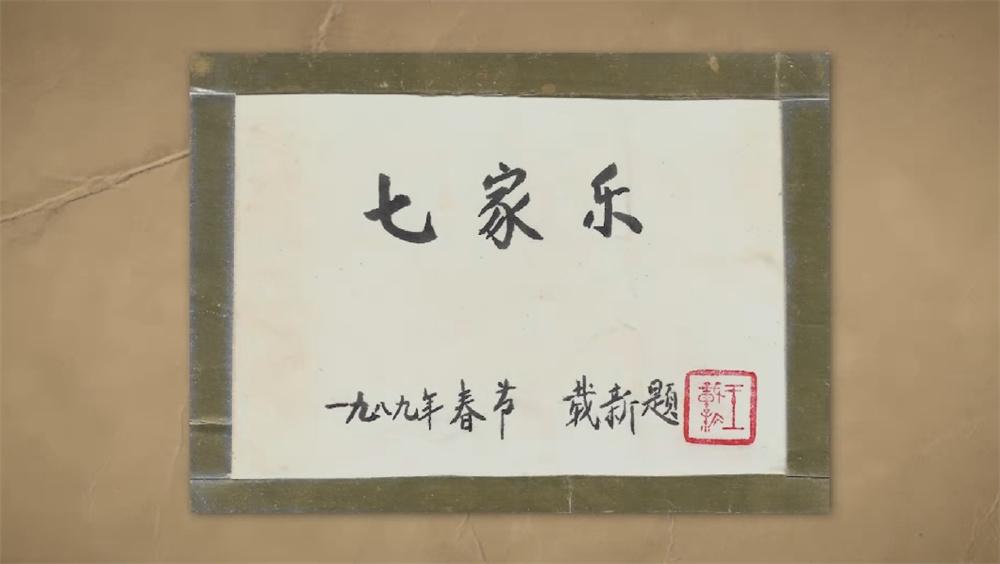 七家乐
一九八九年春节 载新题